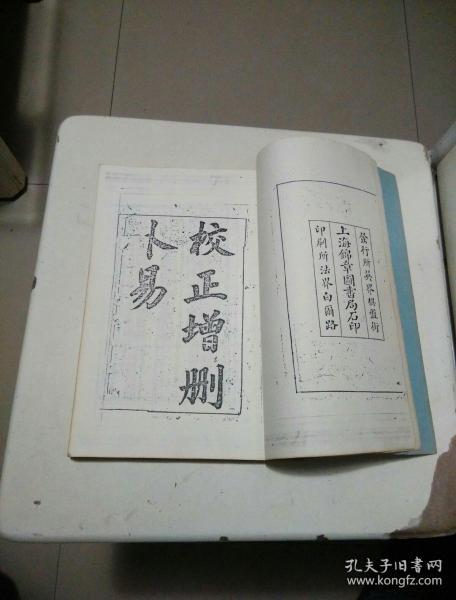 發行所英界棋盤街
上海錦章圖書局石印
印刷所法界白爾路
校正增刪
卜易
孔夫子旧书网
www.kongfz.com